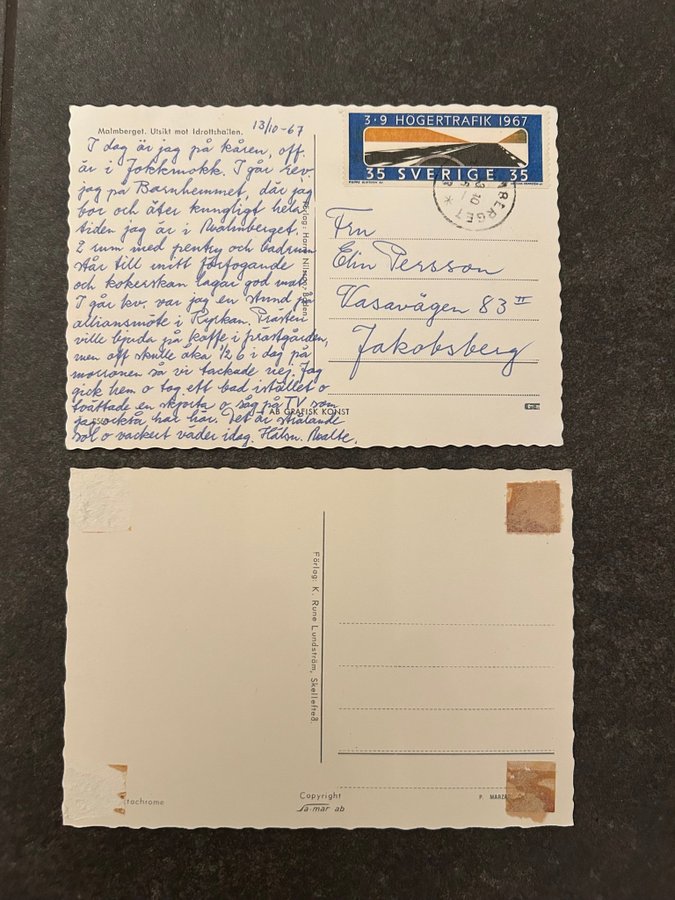 Malmberget. Utsikt mot Idrottshallen.
13/10-67
I dag är jag på kåren, off.
är i Jokkmokk. I går rev.
jag på Barnhemmet, där jag
bor och äter kungligt hela
tiden jag är i Malmberget.
2 rum med pentry och badrum
står till mitt förfogande
och kokerskan lagar god mat.
I går kv. var jag en stund på
alliansmöte i Kyrkan. Prästen
ville bjuda på kaffe i prästgården,
men off skulle åka 1/2 6 i dag på
morronen så vi tackade nej. Jag
gick hem o tog ett bad istället o
tvättade en skjorta o såg på TV som
jag också har här. Det är strålande
sol o vackert väder idag. Hälsn. Malte.
Förlag: Harry Nilsson, Boden.
AB GRAFISK KONST
3·9 HÖGERTRAFIK 1967
35 SVERIGE 35
MBERGET
13 10
Fru
Elin Persson
Vasavägen 83 II
Jakobsberg
Förlag: K. Rune Lundström, Skellefteå.
tachrome
Copyright
Sa-mar ab
P. MARZ